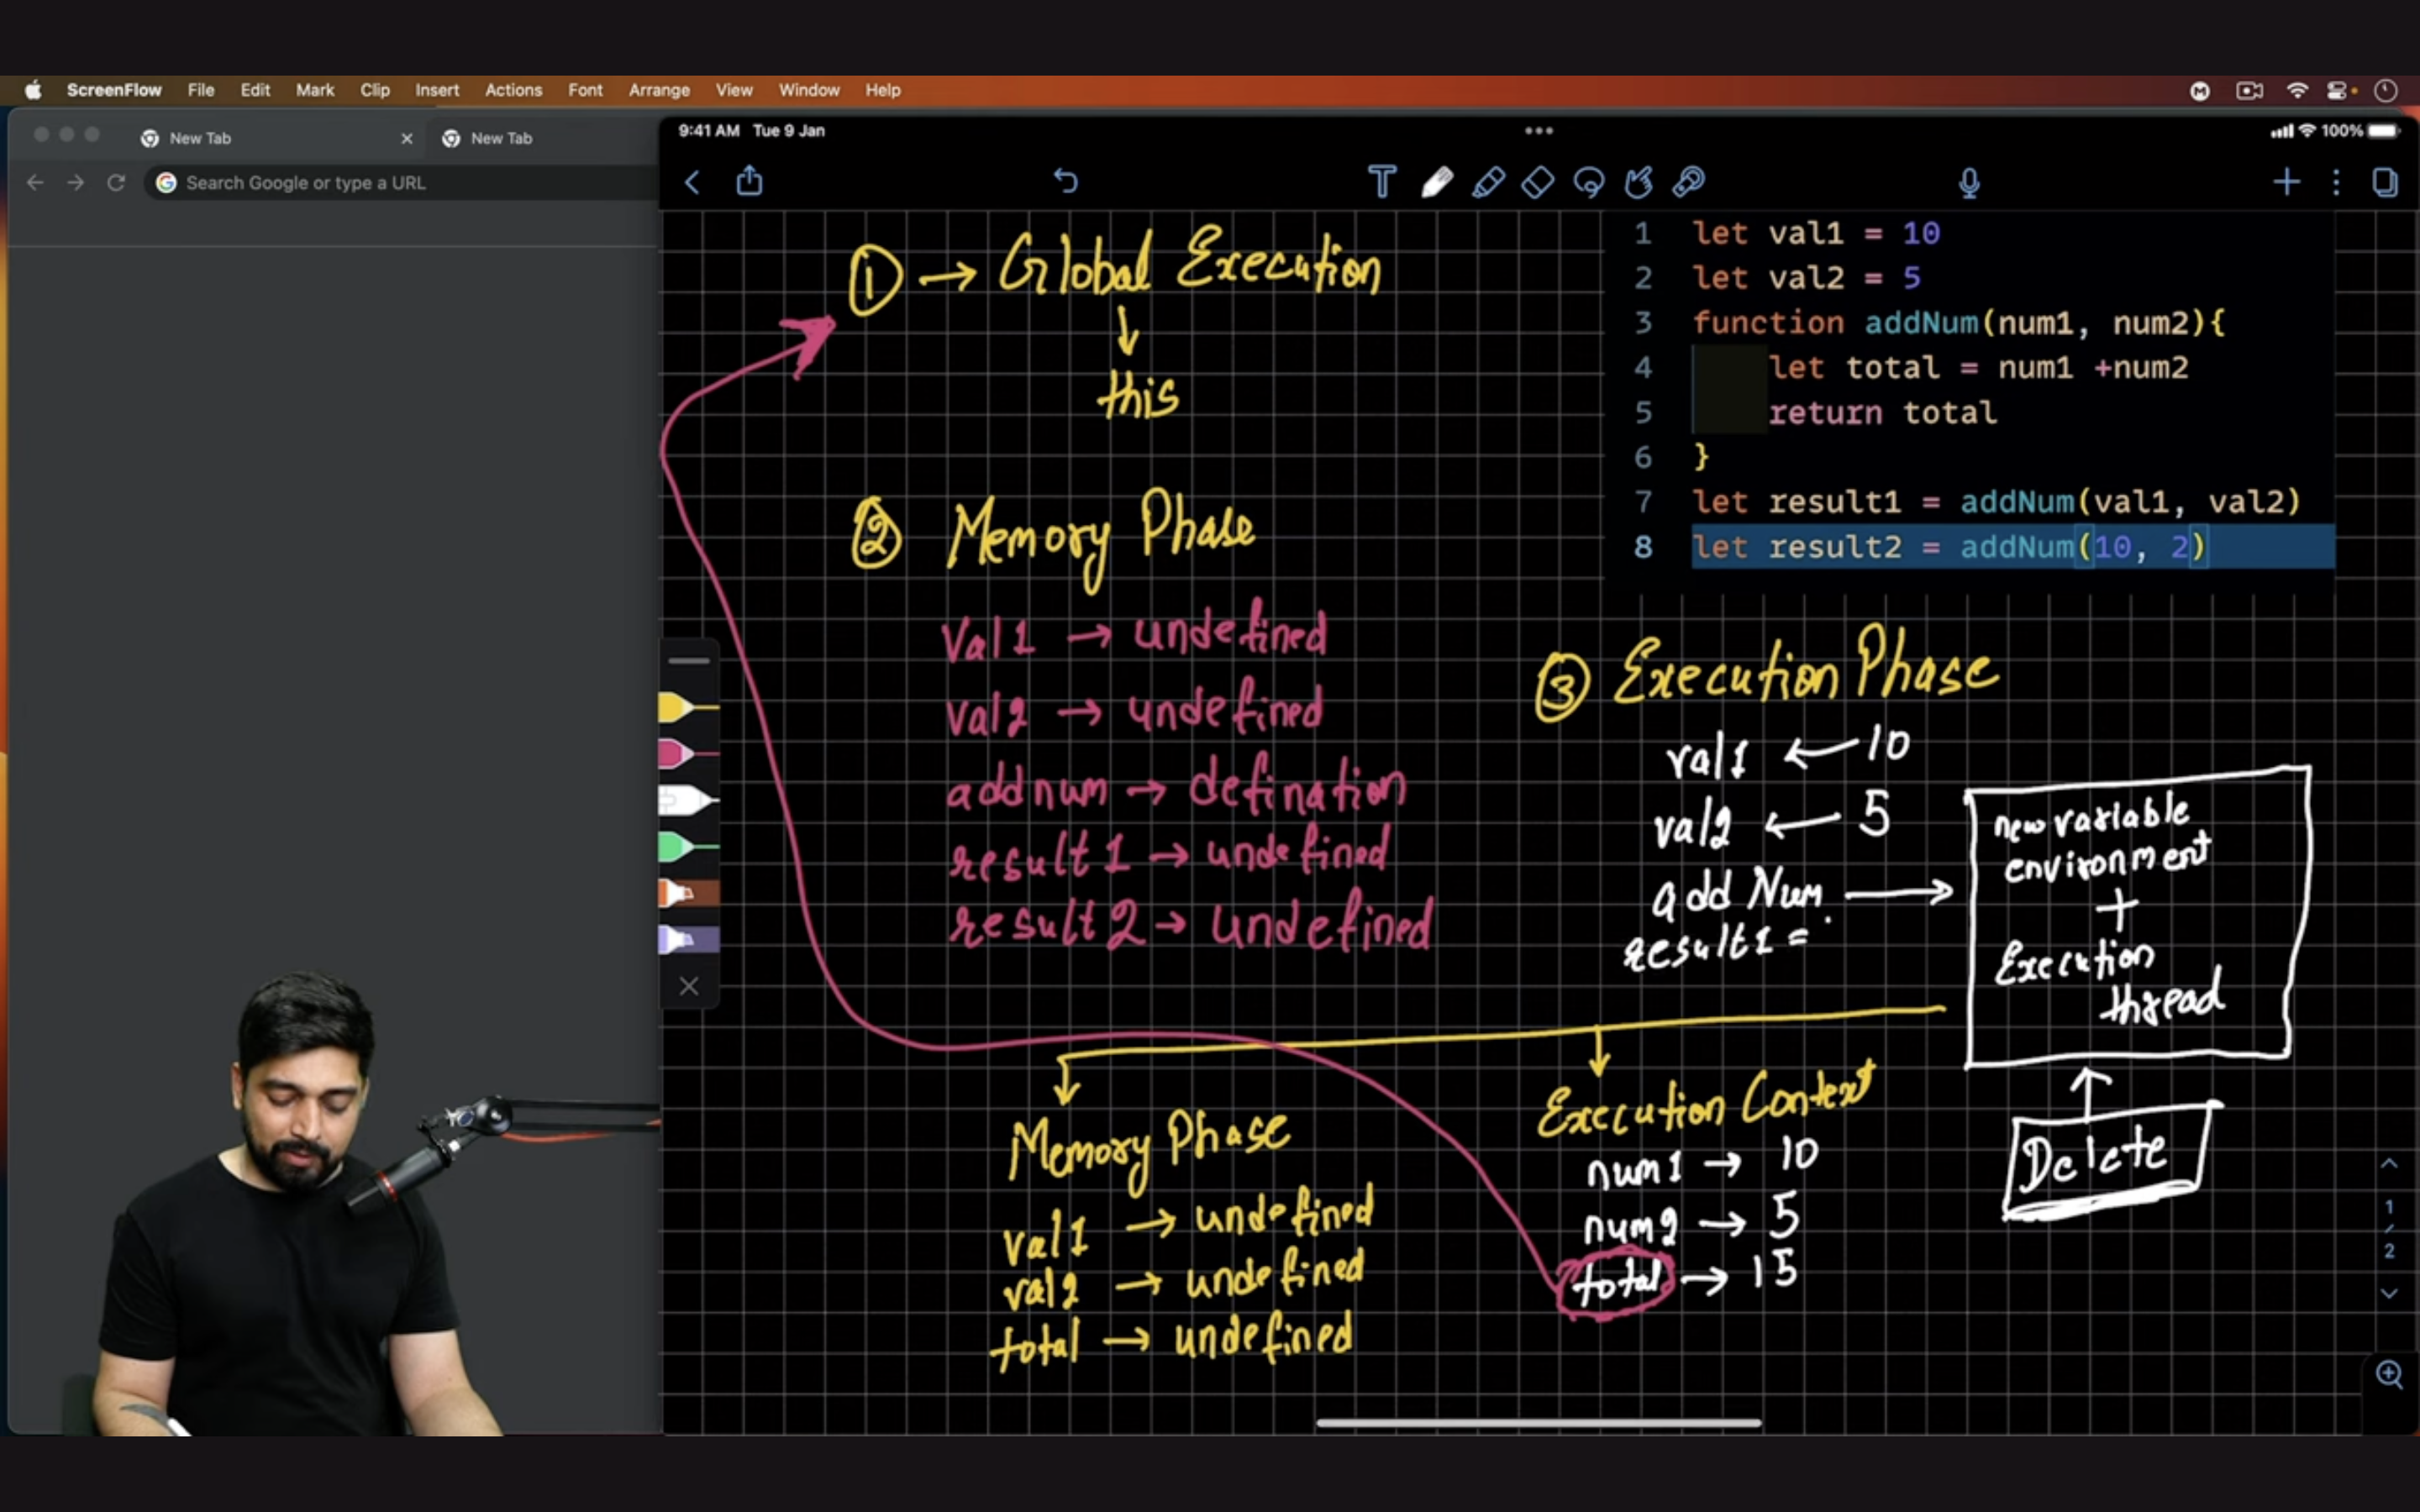 ScreenFlow File Edit Mark Clip Insert Actions Font Arrange View Window Help
New Tab
New Tab
Search Google or type a URL
9:41 AM Tue 9 Jan
100%
1 → Global Execution
↓
this
2 Memory Phase
Val1 → undefined
val2 → undefined
addnum → defination
result1 → undefined
result2 → undefined
1 let val1 = 10
2 let val2 = 5
3 function addNum(num1, num2){
4 let total = num1 +num2
5 return total
6 }
7 let result1 = addNum(val1, val2)
8 let result2 = addNum(10, 2)
3 Execution Phase
val1 ← 10
val2 ← 5
add Num →
result1 =
new variable
environment
+
Execution
thread
Delete
Memory Phase
val1 → undefined
val2 → undefined
total → undefined
Execution Context
num1 → 10
num2 → 5
total → 15
1
/
2